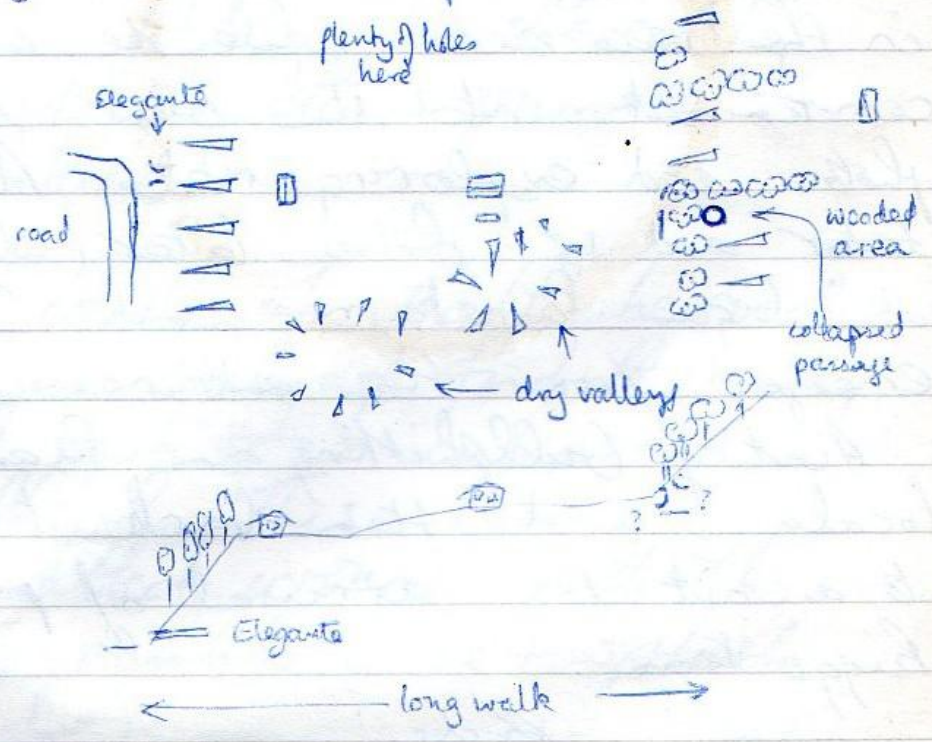 plenty of holes
here
Elegante
road
wooded
area
collapsed
passage
dry valleys
? ?
Elegante
long walk